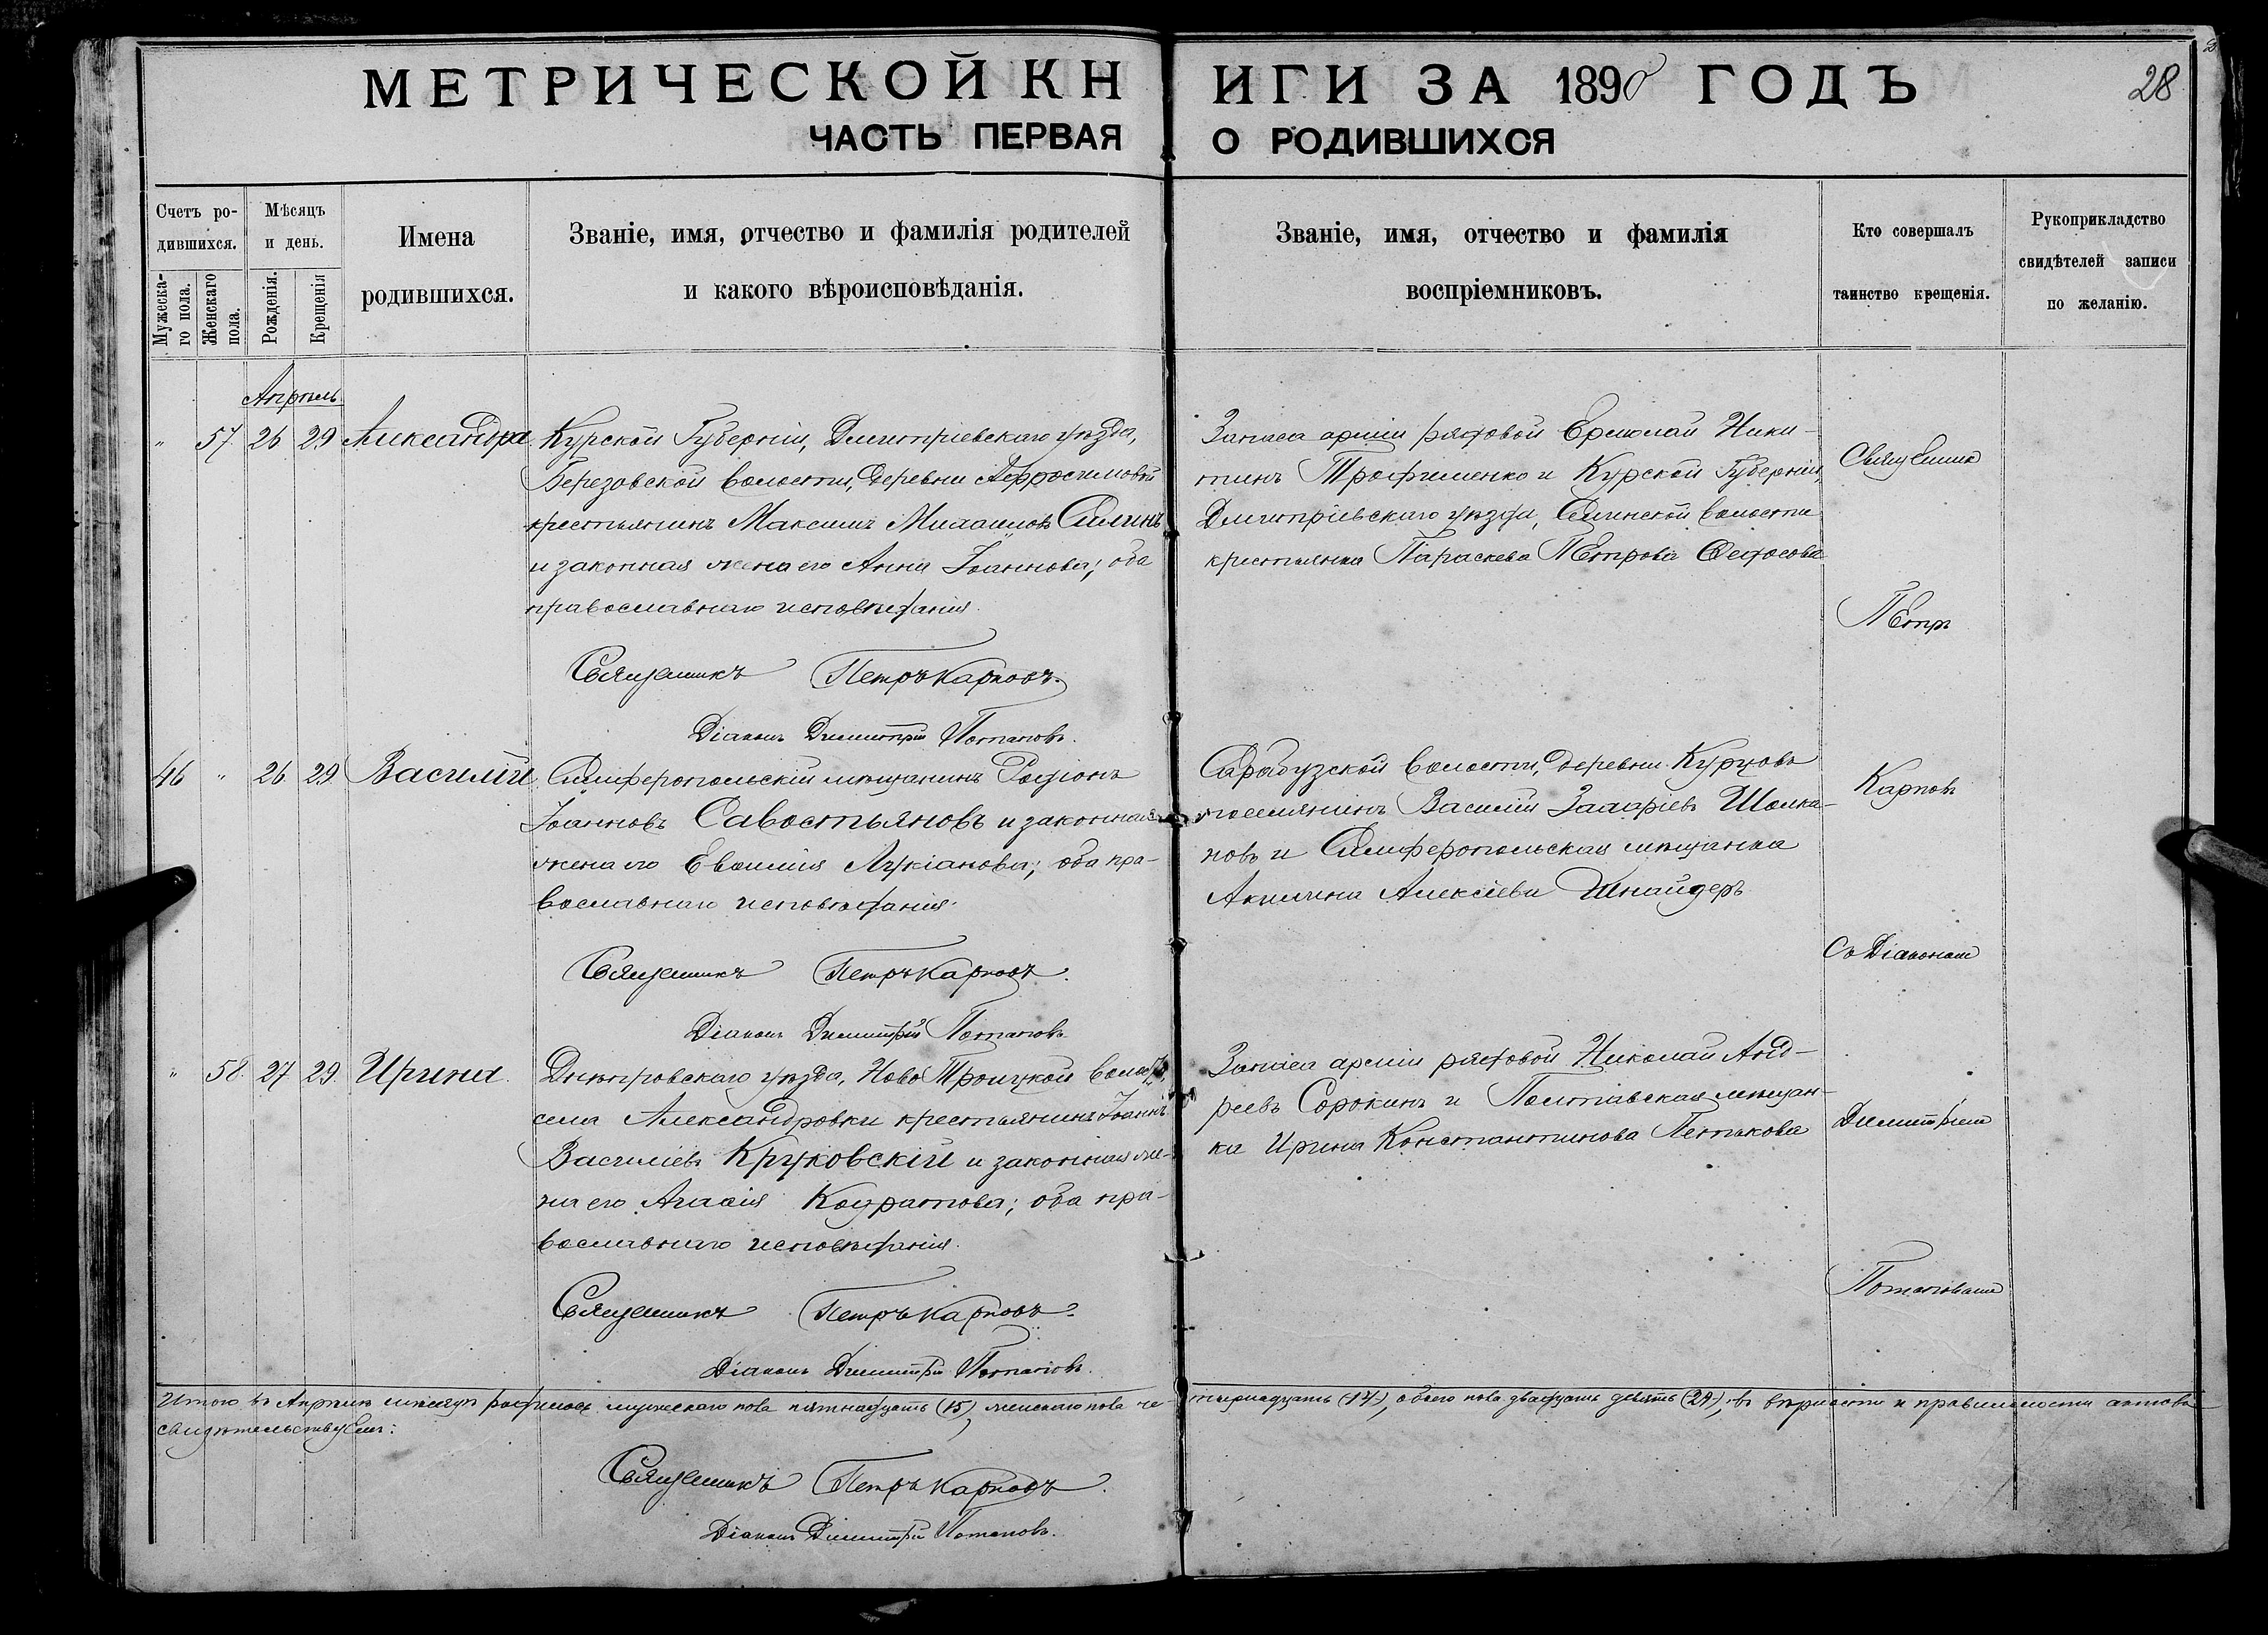 МЕТРИЧЕСКОЙ КНИГИ ЗА 1890 ГОДЪ
28
ЧАСТЬ ПЕРВАЯ О РОДИВШИХСЯ
Счетъ ро-
дившихся.
Мужеска-
го пола.
Женскаго
пола.
Мѣсяцъ
и день.
Рожденія.
Крещенія
Имена
родившихся.
Званіе, имя, отчество и фамилія родителей
и какого вѣроисповѣданія.
Званіе, имя, отчество и фамилія
воспріемниковъ.
Кто совершалъ
таинство крещенія.
Рукоприкладство
свидѣтелей записи
по желанію.
Апрѣль
" 57 26 29 Александра
Курской Губерніи, Дмитріевскаго уѣзда,
Березовской волости, деревни
крестьянинъ Максимъ Михаиловъ Силинъ
и законная жена его Анна Іоаннова; оба
православнаго исповѣданія.
Священникъ Петръ Карповъ.
Діаконъ Димитрій Потаповъ.
Запаса арміи рядовой Ермолай Ники-
тинъ Трофименко и Курской Губерніи,
Дмитріевскаго уѣзда, волости
крестьянка Параскева Петрова Федосова
46 " 26 29 Василій
Симферопольскій мѣщанинъ Родіонъ
Іоанновъ Савостьяновъ и законная
жена его Евфимія Лукіанова; оба пра-
вославнаго исповѣданія.
Священникъ Петръ Карповъ.
Діаконъ Димитрій Потаповъ.
Сарабузской волости, деревни Курцовъ
поселянинъ Василій Захаріевъ Шолка-
новъ и Симферопольская мѣщанка
Акилина Алексіева Шнайдеръ
" 58. 27 29. Ирина.
Днѣпровскаго уѣзда, Ново Троицкой волос.,
села Александровки крестьянинъ Іоаннъ
Василіевъ Круковскій и законная же-
на его Агафія Кодратова; оба пра-
вославнаго исповѣданія.
Священникъ Петръ Карповъ.
Діаконъ Димитрій Потаповъ.
Запаса арміи рядовой Николай Анд-
реевъ Сорокинъ и Полтавская мѣщан-
ка Ирина Константинова Петькова
Священникъ
Петръ
Карповъ
Съ Діакономъ
Димитріемъ
Потаповымъ
Итого въ Апрѣлѣ мѣсяцѣ родилось мужескаго пола пятнадцать (15), женскаго пола че-тырнадцать (14), обоего пола двадцать девять (29), въ вѣрности и правильности актовъ
свидѣтельствуемъ:
Священникъ Петръ Карповъ.
Діаконъ Димитрій Потаповъ.